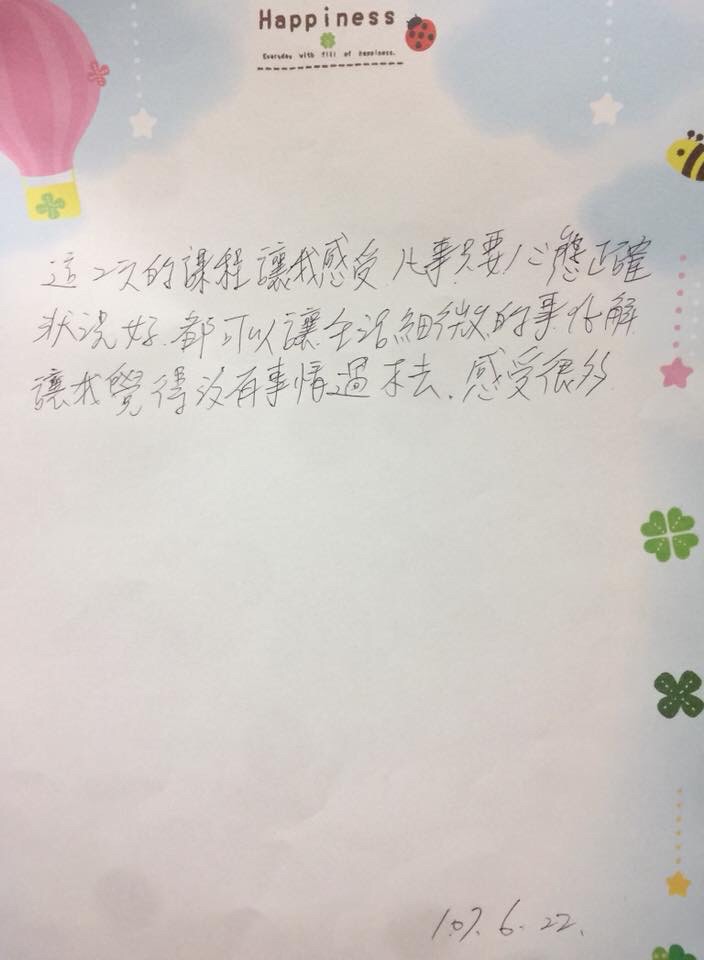 Happiness
Everyday with fill of happiness.
這2次的課程讓我感受凡事只要心態正確
狀況好.都可以讓生活細微的事化解
讓我覺得沒有事情過不去.感受很多
107.6.22.